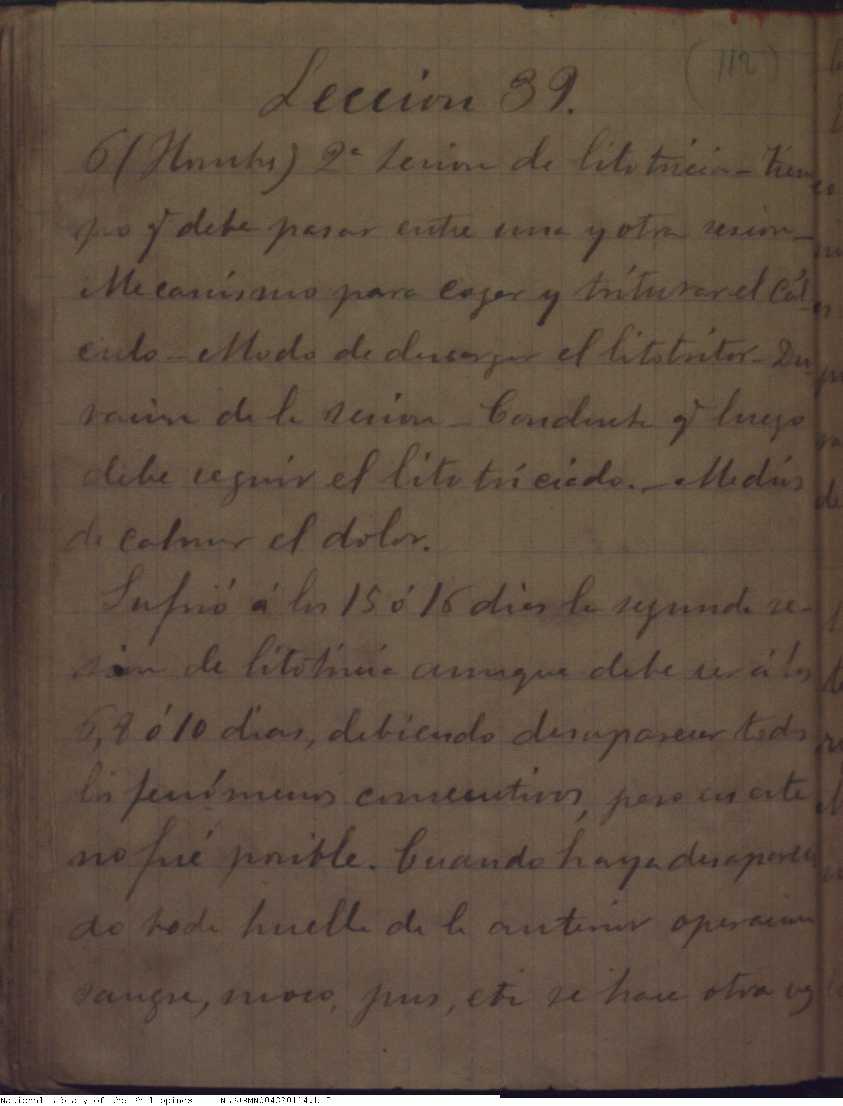 (112)
Leccion 39.
6 (Hombs) 2ª sesion de litotricia - tiem
po q̃ debe pasar entre una y otra sesion -
Mecanismo para coger y triturar el Cál-
culo - Modo de descargar el litotritor - Du-
racion de la sesion - Conducta q̃ luego
debe seguir el litotriciado. - Medios
de calmar el dolor.
Sufrió á los 15 ó 16 dias la segunda se-
sion de litotricia aunque debe ser á los
6, 8 ó 10 dias, debiendo desaparecer todos
los fenómenos consecutivos, pero en este
no fué posible. Cuando haya desapareci
do toda huella de la anterior operacion
sangre, moco, pus, etc se hace otra vez
National Library of the Philippines